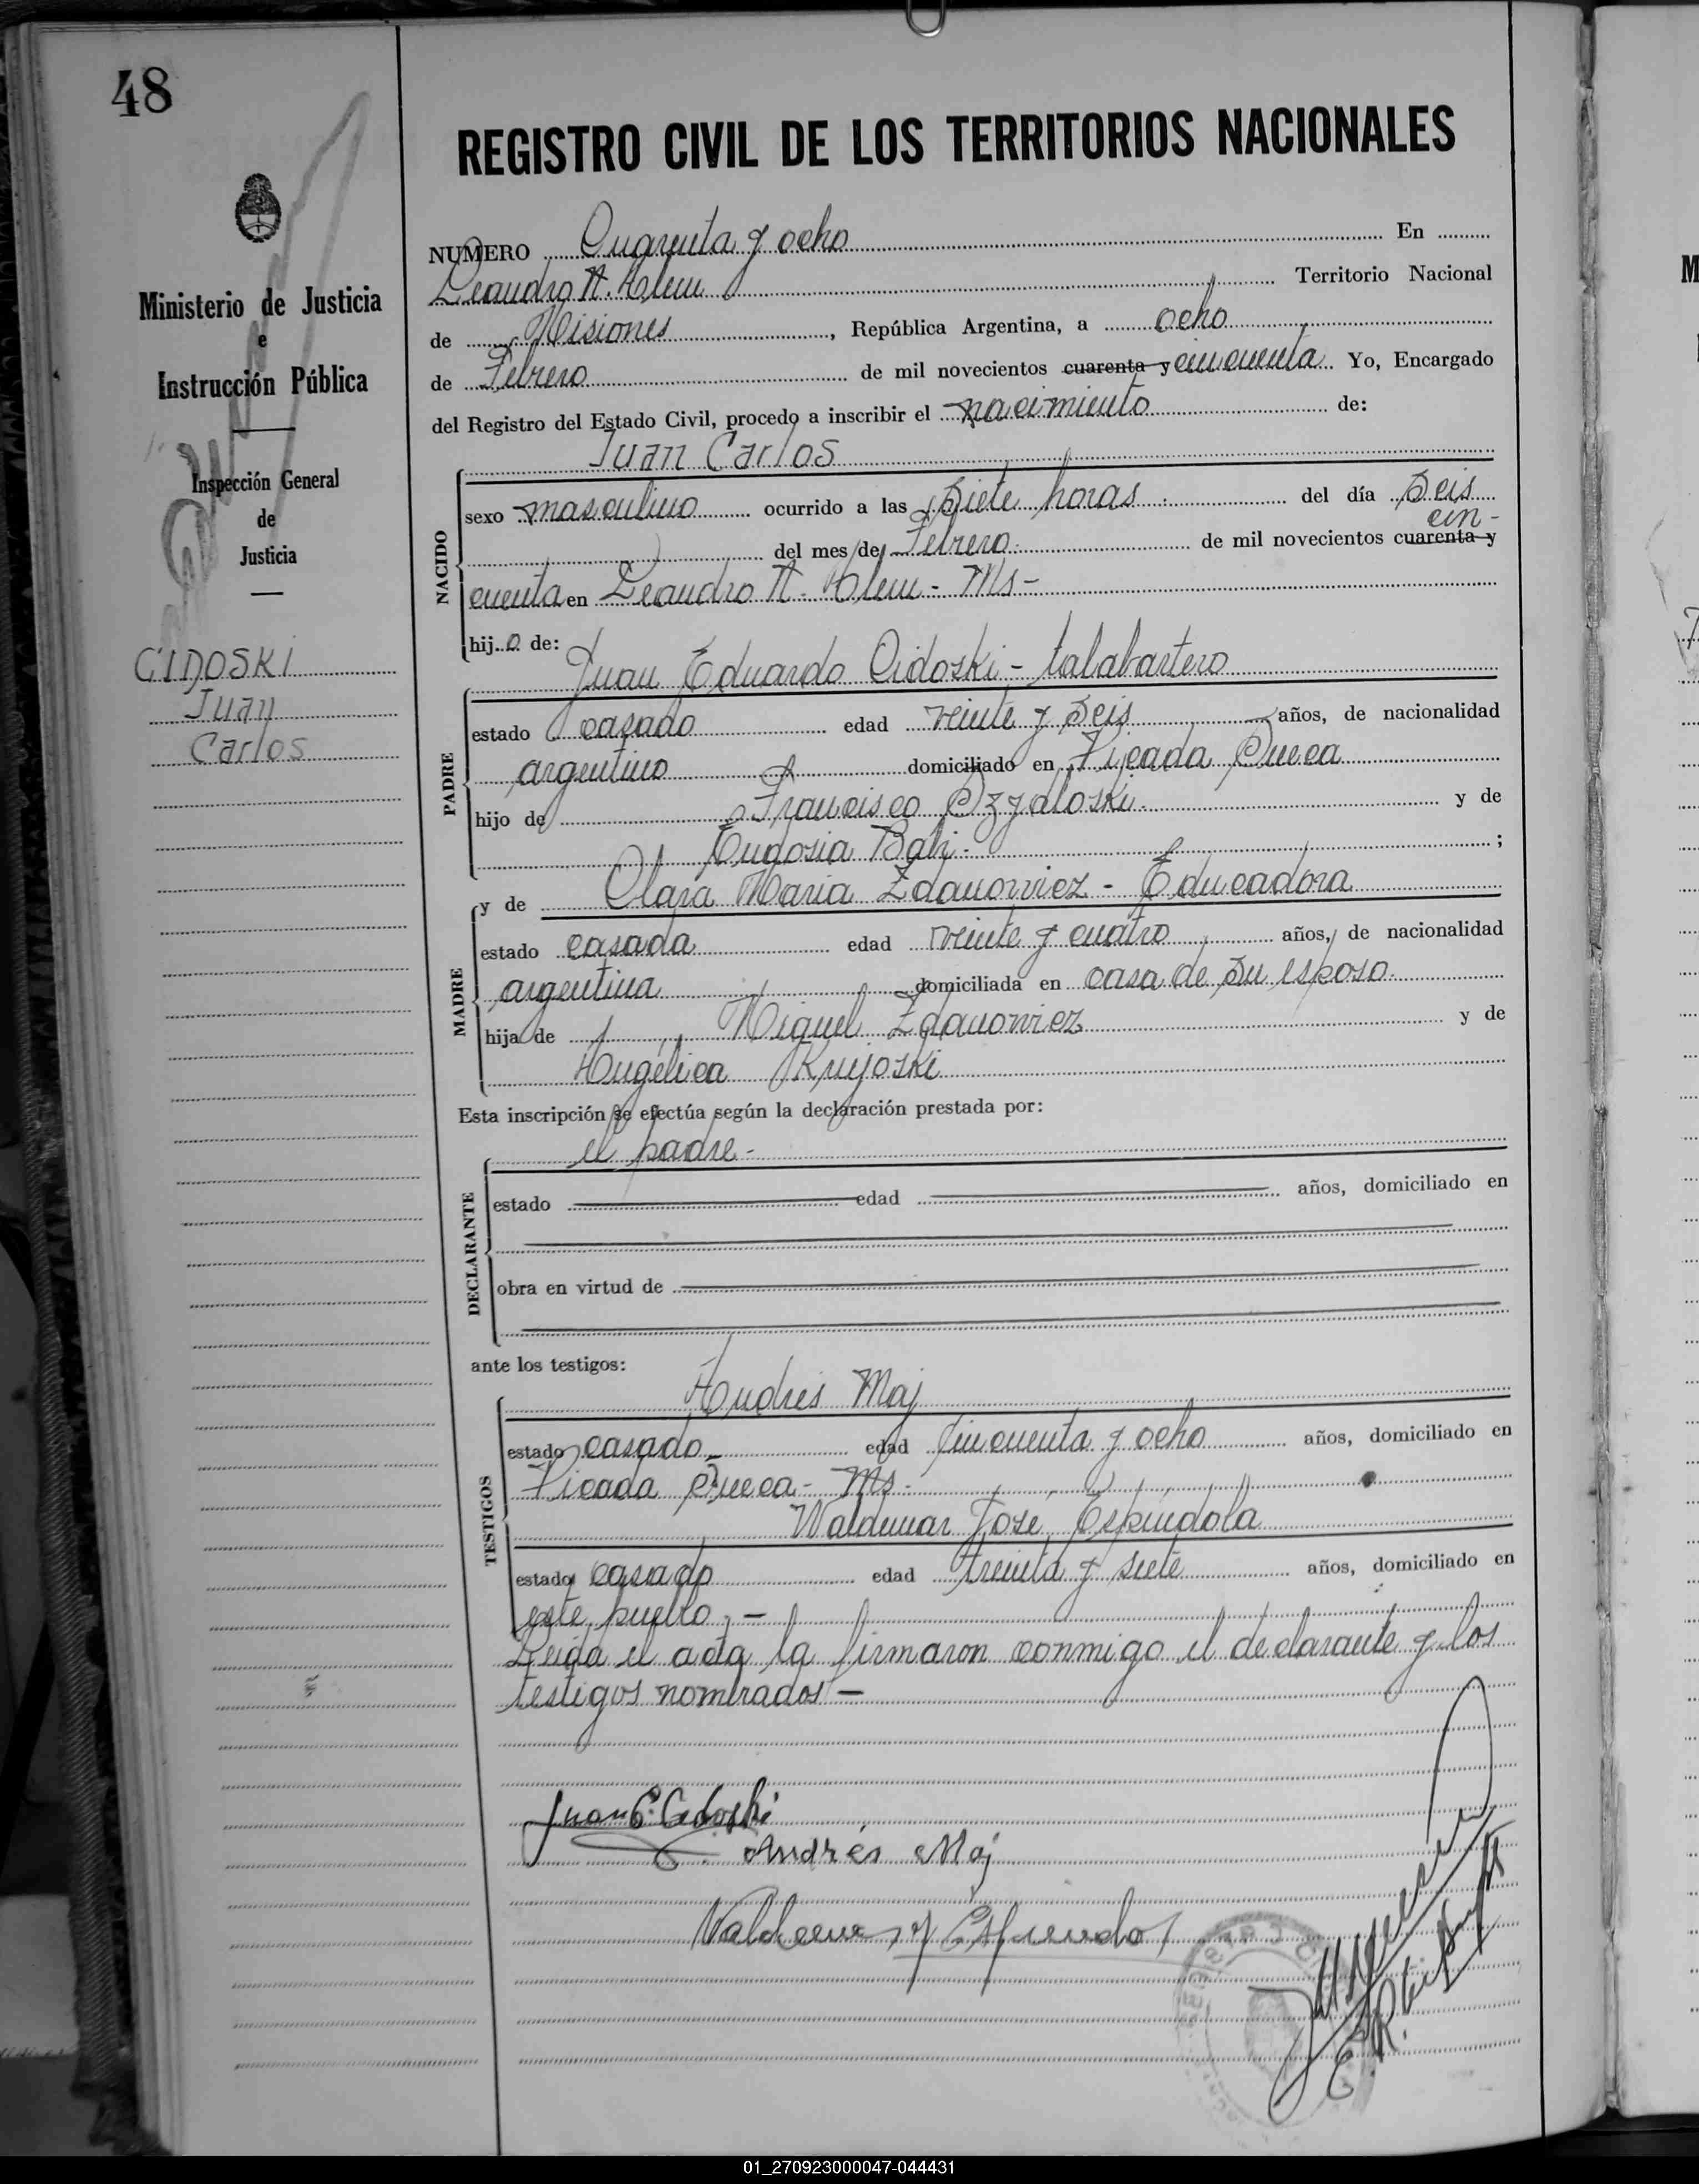 48
Ministerio de Justicia
e
Instrucción Pública
Inspección General
de
Justicia
CIDOSKI
Juan
Carlos
REGISTRO CIVIL DE LOS TERRITORIOS NACIONALES
NUMERO Cuarenta y ocho En
Leandro N. Alem Territorio Nacional
de Misiones, República Argentina, a ocho
de Febrero de mil novecientos cuarenta y cincuenta Yo, Encargado
del Registro del Estado Civil, procedo a inscribir el nacimiento de:
Juan Carlos
NACIDO
sexo masculino ocurrido a las siete horas del día seis
cin-
del mes de Febrero de mil novecientos cuarenta y
cuenta en Leandro N. Alem - Ms -
hijo de:
Juan Eduardo Cidoski - talabartero
PADRE
estado casado edad veinte y seis años, de nacionalidad
argentino domiciliado en Picada Sueca
hijo de Francisco y de
Eudosia ;
MADRE
y de Clara Maria Zdanowicz - Educadora
estado casada edad veinte y cuatro años, de nacionalidad
argentina domiciliada en casa de su esposo
hija de Miguel Zdanowicz y de
Angélica Kryjoski
Esta inscripción se efectúa según la declaración prestada por:
el padre -
DECLARANTE
estado edad años, domiciliado en
obra en virtud de
ante los testigos:
TESTIGOS
Andrés Maj
estado casado - edad cincuenta y ocho años, domiciliado en
Picada Sueca - Ms -
Waldemar José Espíndola
estado casado edad treinta y siete años, domiciliado en
este pueblo. -
Leida el acta la firmaron conmigo el declarante y los
testigos nombrados -
Juan E. Cidoski
Andrés Maj
Valdemar J Espindola
01_270923000047-044431